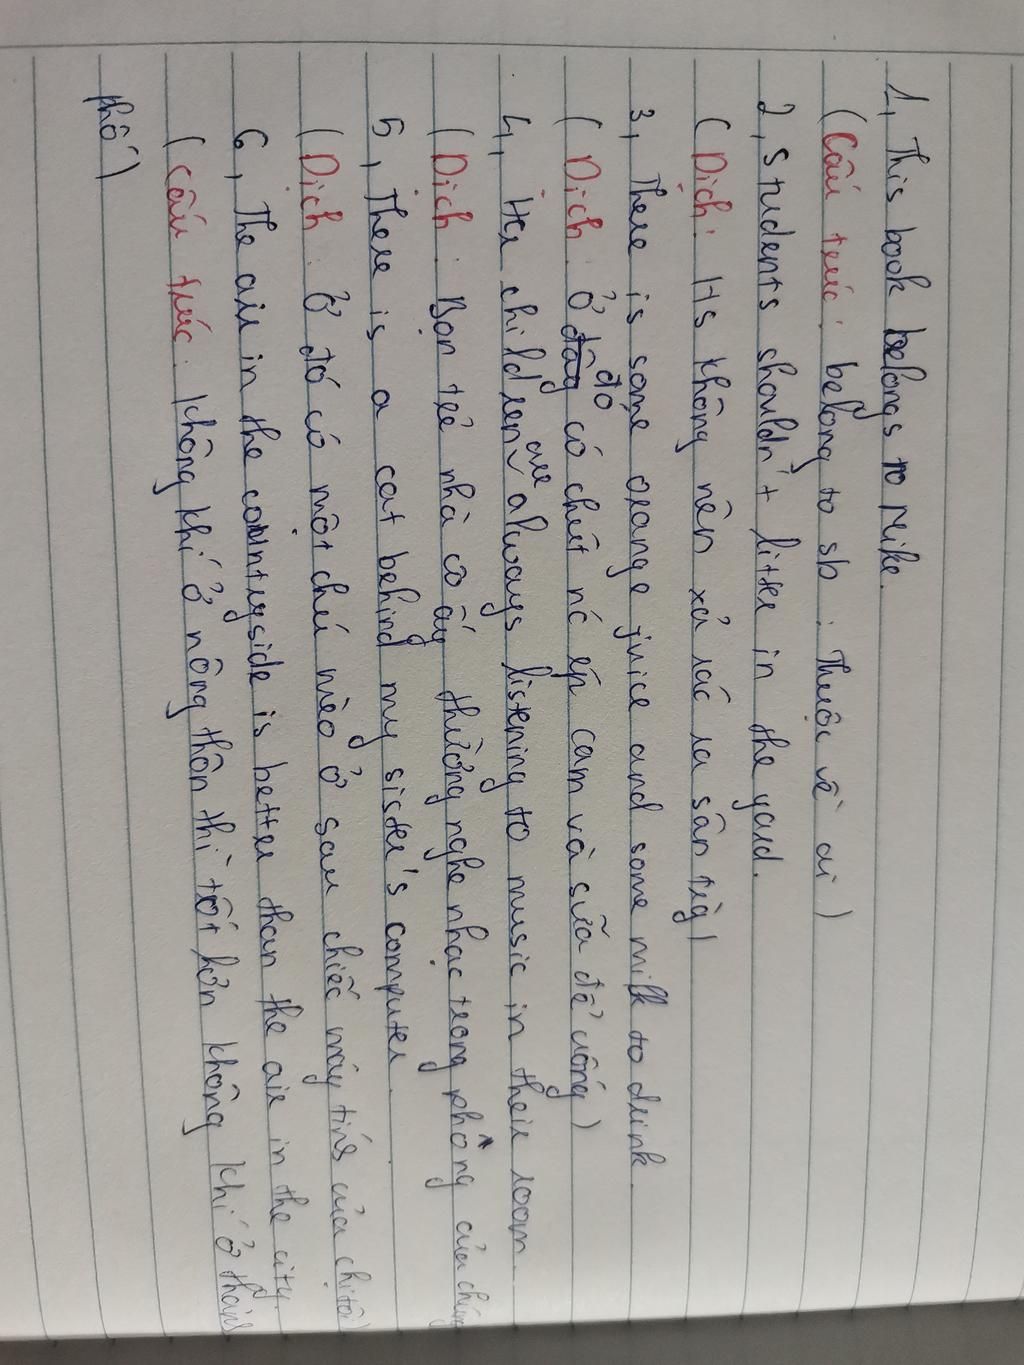 1, This book belongs to Mike.
(Cấu trúc: belong to sb : Thuộc về ai)
2, Students shouldn't litter in the yard.
(Dịch: Hs không nên xả rác ra sân trg)
3, There is some orange juice and some milk to drink.
(Dịch: Ở đó có chút nc ép cam và sữa để uống)
4, Her children are always listening to music in their room.
(Dịch: Bọn trẻ nhà cô ấy thường nghe nhạc trong phòng của chúng
5, There is a cat behind my sister's computer.
(Dịch: Ở đó có một chú mèo ở sau chiếc máy tính của chị tôi)
6, The air in the countryside is better than the air in the city.
(Cấu trúc: không khí ở nông thôn thì tốt hơn không khí ở thành
phố)